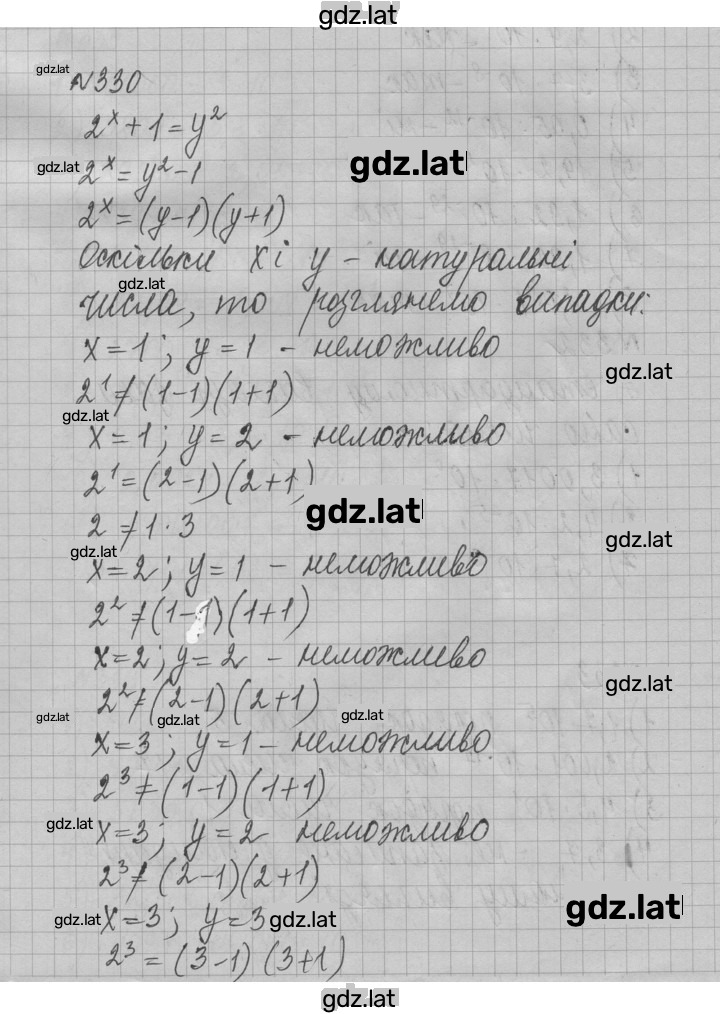 gdz.lat
gdz.lat
№330
2ˣ + 1 = y²
gdz.lat
gdz.lat
2ˣ = y² - 1
2ˣ = (y-1)(y+1)
Оскільки x і y - натуральні
gdz.lat
числа, то розглянемо випадки:
x = 1; y = 1 - неможливо
gdz.lat
2¹ ≠ (1-1)(1+1)
gdz.lat
x = 1; y = 2 - неможливо
2¹ = (2-1)(2+1)
gdz.lat
2 ≠ 1 · 3
gdz.lat
gdz.lat
x = 2; y = 1 - неможливо
2² ≠ (1-1)(1+1)
x = 2; y = 2 - неможливо
gdz.lat
2² ≠ (2-1)(2+1)
gdz.lat
gdz.lat
gdz.lat
x = 3; y = 1 - неможливо
2³ ≠ (1-1)(1+1)
gdz.lat
x = 3; y = 2 неможливо
2³ ≠ (2-1)(2+1)
gdz.lat
gdz.lat
x = 3; y = 3
gdz.lat
2³ = (3-1)(3+1)
gdz.lat